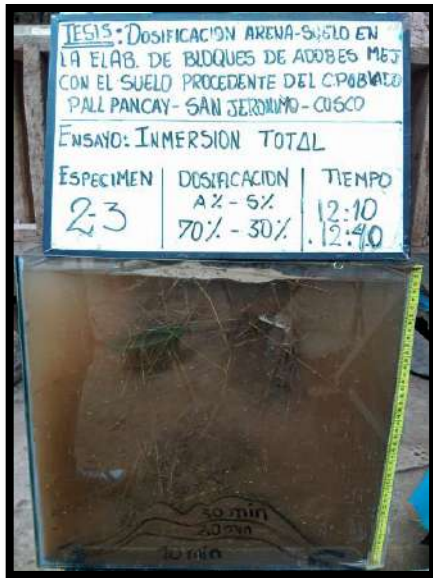 TESIS: DOSIFICACION ARENA-SUELO EN
LA ELAB. DE BLOQUES DE ADOBES MEJ
CON EL SUELO PROCEDENTE DEL C.POBLADO
PALLPANCAY - SAN JERONIMO - CUSCO
ENSAYO: INMERSION TOTAL
ESPECIMEN DOSIFICACION TIEMPO
2-3 A% - S% 12:10
70% - 30% 12:40
30 min
20 min
10 min